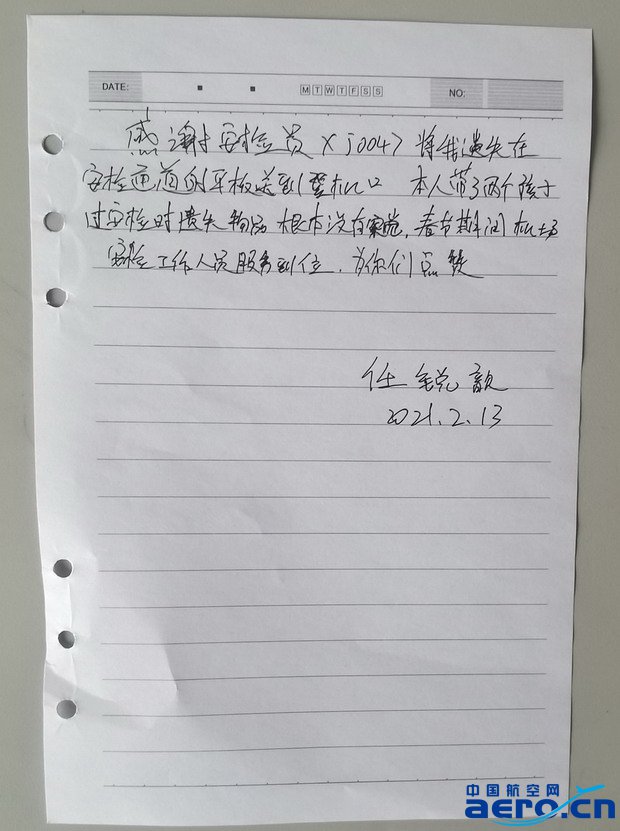 DATE:
M T W T F S S
NO:
感谢安检员 XJ0047 将我遗失在
安检通道的平板送到登机口 本人带了两个孩子
过安检时遗失物品根本没有察觉,春节期间机场
安检工作人员服务到位,为你们点赞
任锐
2021.2.13
中国航空网
aero.cn